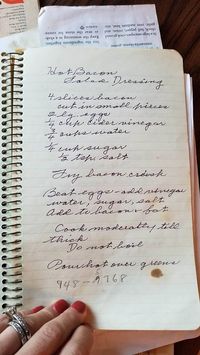 Hot Bacon
Salad Dressing
4 slices bacon
cut in small pieces
2 lg. eggs
1/4 cup cider vinegar
3/4 cups water
1/4 cup sugar
1/2 tsp. salt
Fry bacon crisp
Beat eggs - add vinegar
water, sugar, salt
Add to bacon & fat
Cook moderately till
thick
Do not boil
Pour hot over greens
948-9768